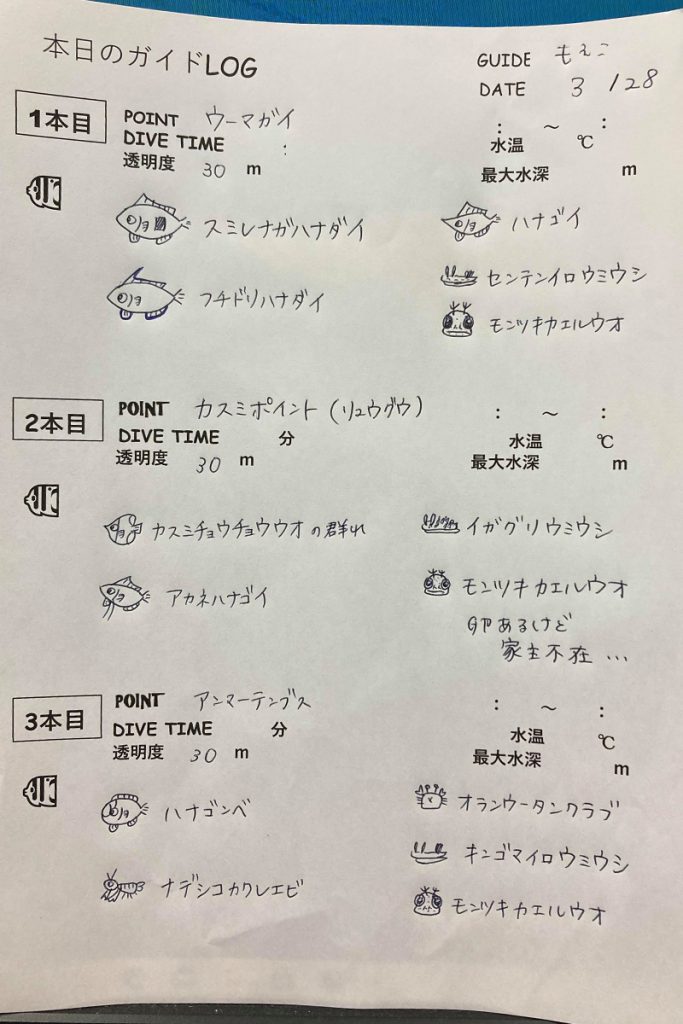 本日のガイドLOG
GUIDE もえこ
DATE 3/28
1本目
POINT ウーマガイ
DIVE TIME :
: ～ :
透明度 30 m
水温 ℃
最大水深 m
スミレナガハナダイ
ハナゴイ
フチドリハナダイ
センテンイロウミウシ
モンツキカエルウオ
2本目
POINT カスミポイント (リュウグウ)
DIVE TIME 分
: ～ :
透明度 30 m
水温 ℃
最大水深 m
カスミチョウチョウウオの群れ
イガグリウミウシ
アカネハナゴイ
モンツキカエルウオ
卵あるけど
家主不在...
3本目
POINT アンマーテングス
DIVE TIME 分
: ～ :
透明度 30 m
水温 ℃
最大水深 m
ハナゴンベ
オランウータンクラブ
キンゴマイロウミウシ
ナデシコカクレエビ
モンツキカエルウオ